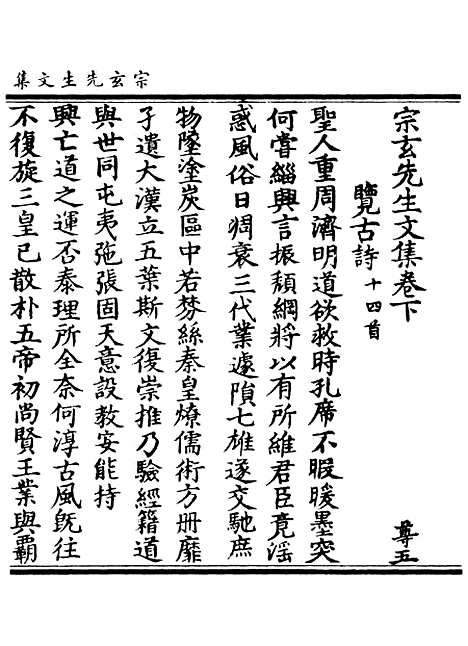 宗玄先生文集
宗玄先生文集卷下 尊五
覽古詩十四首
聖人重周濟明道欲救時孔席不暇暖墨突
何嘗緇興言振頹綱將以有所維君臣竟淫
惑風俗日凋衰三代業遽隕七雄遂交馳庶
物墜塗炭區中若棼絲秦皇燎儒術方冊靡
孑遺大漢立五葉斯文復崇推乃驗經籍道
與世同屯夷弛張固天意設教安能持
興亡道之運否泰理所全奈何淳古風既往
不復旋三皇已散朴五帝初尚賢王業與霸